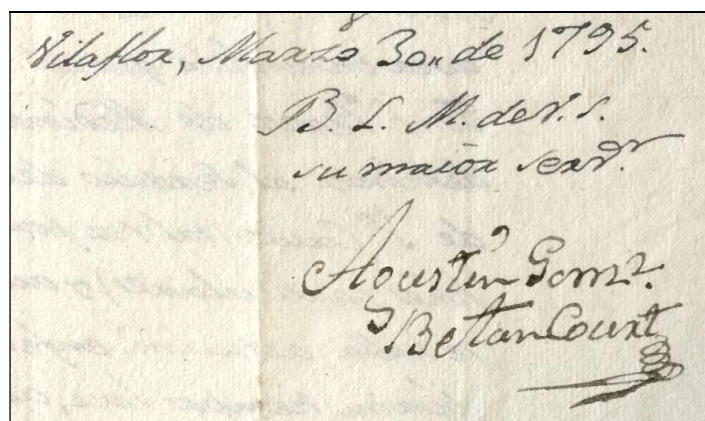 Vilaflor, Marzo 30„ de 1795.
B. L. M. de V. S.
su maior serv.ᵒʳ
Agustín Gomz.
Betancourt